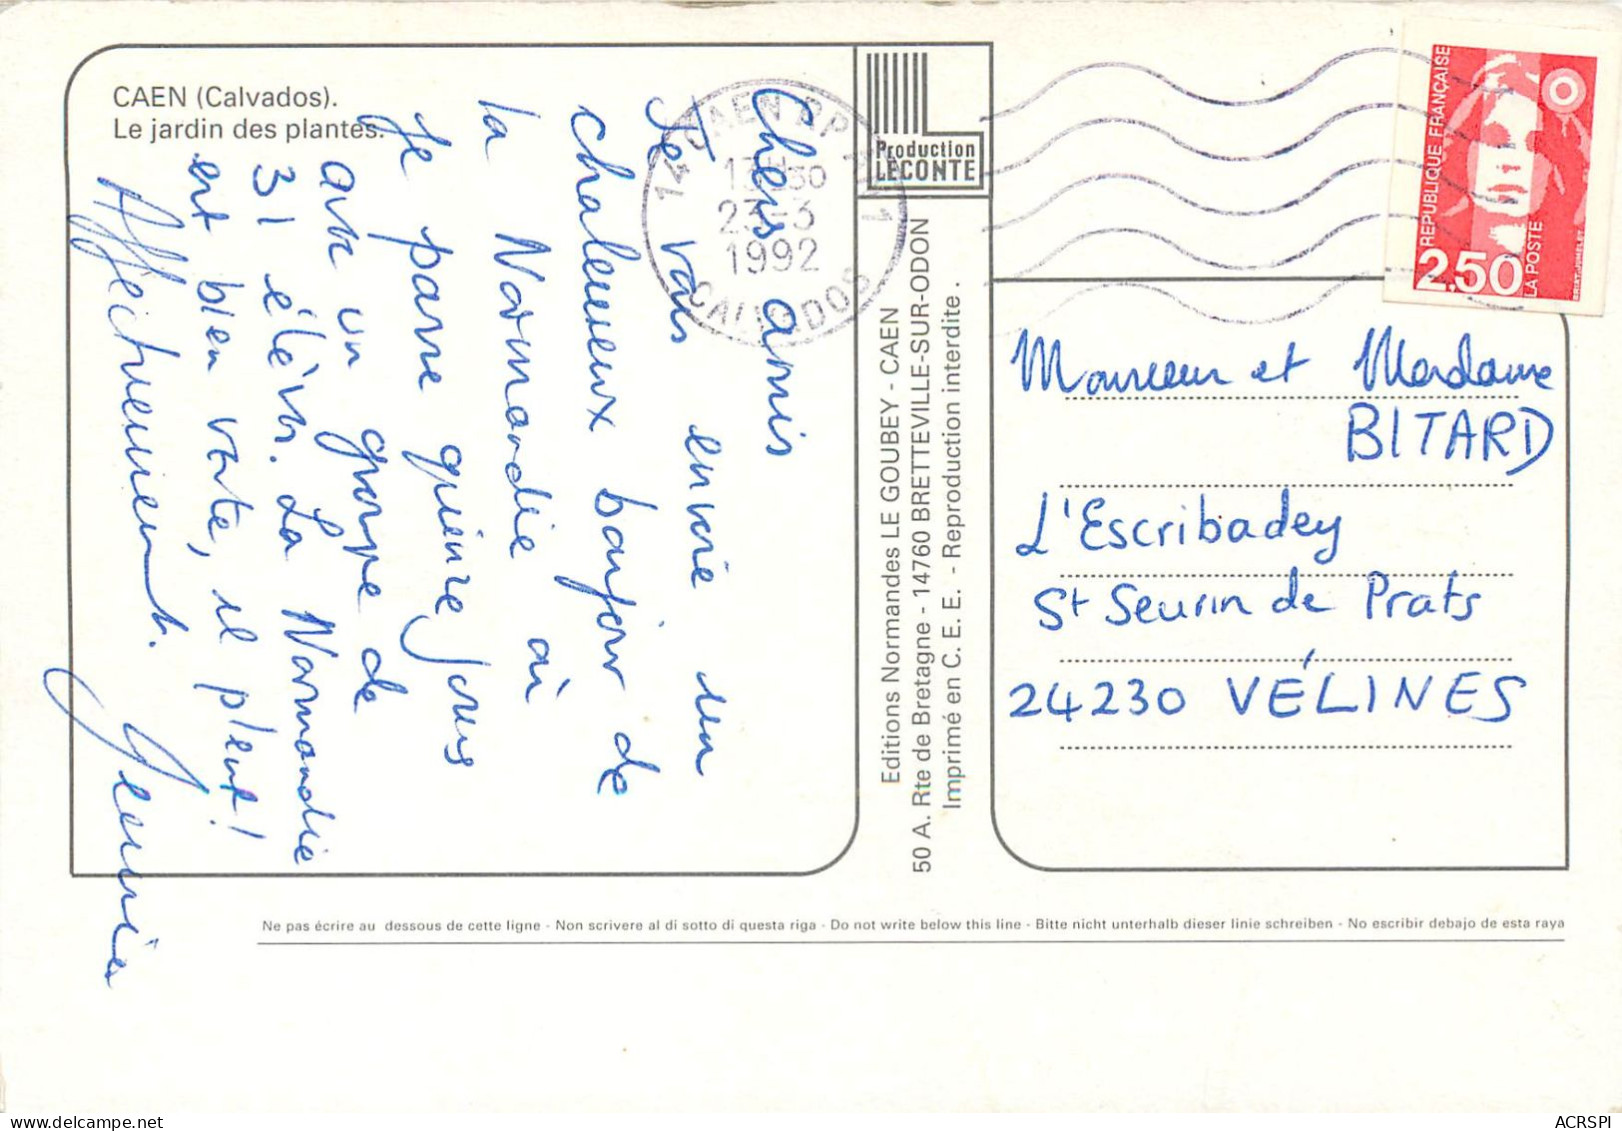 CAEN (Calvados).
Le jardin des plantes.
Chers amis
Je vous envoie un
chaleureux bonjour de
la Normandie où
je passe quinze jours
avec un groupe de
31 élèves. La Normandie
est bien verte, il pleut!
Affectueusement.
14 CAEN RP
13H30
23-3
1992
CALVADOS
Production
LECONTE
Editions Normandes LE GOUBEY - CAEN
50 A. Rte de Bretagne - 14760 BRETTEVILLE-SUR-ODON
Imprimé en C. E. E. - Reproduction interdite.
REPUBLIQUE FRANÇAISE
2,50
LA POSTE
Monsieur et Madame
BITARD
L'Escribadey
St Seurin de Prats
24230 VÉLINES
Ne pas écrire au dessous de cette ligne - Non scrivere al di sotto di questa riga - Do not write below this line - Bitte nicht unterhalb dieser linie schreiben - No escribir debajo de esta raya
ACRSPI